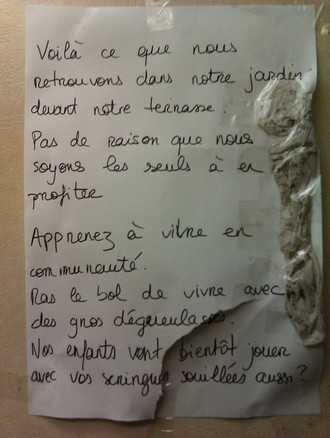 Voilà ce que nous
retrouvons dans notre jardin
devant notre terrasse.
Pas de raison que nous
soyons les seuls à en
profiter
Apprenez à vivre en
communauté.
Ras le bol de vivre avec
des gros dégueulasses.
Nos enfants vont bientôt jouer
avec vos seringues souillées aussi?